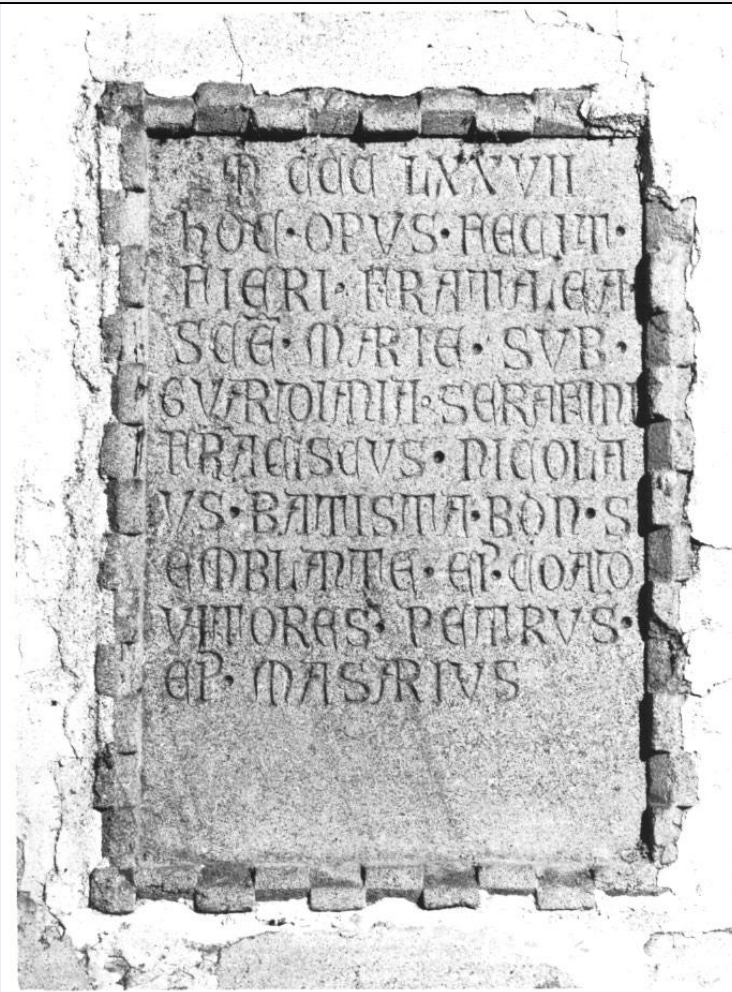 M CCC LXXVII
hOC · OPVS · FECIT ·
FIERI · FRATALEA
SCE · MARIE · SVB ·
GVARDIANIA · SERAFINI
FRACISCVS · NICOLA
VS · BATISTA · BON · S
EMBLANTE · EP · COAD
VITORES · PETRVS ·
EP · MASARIVS